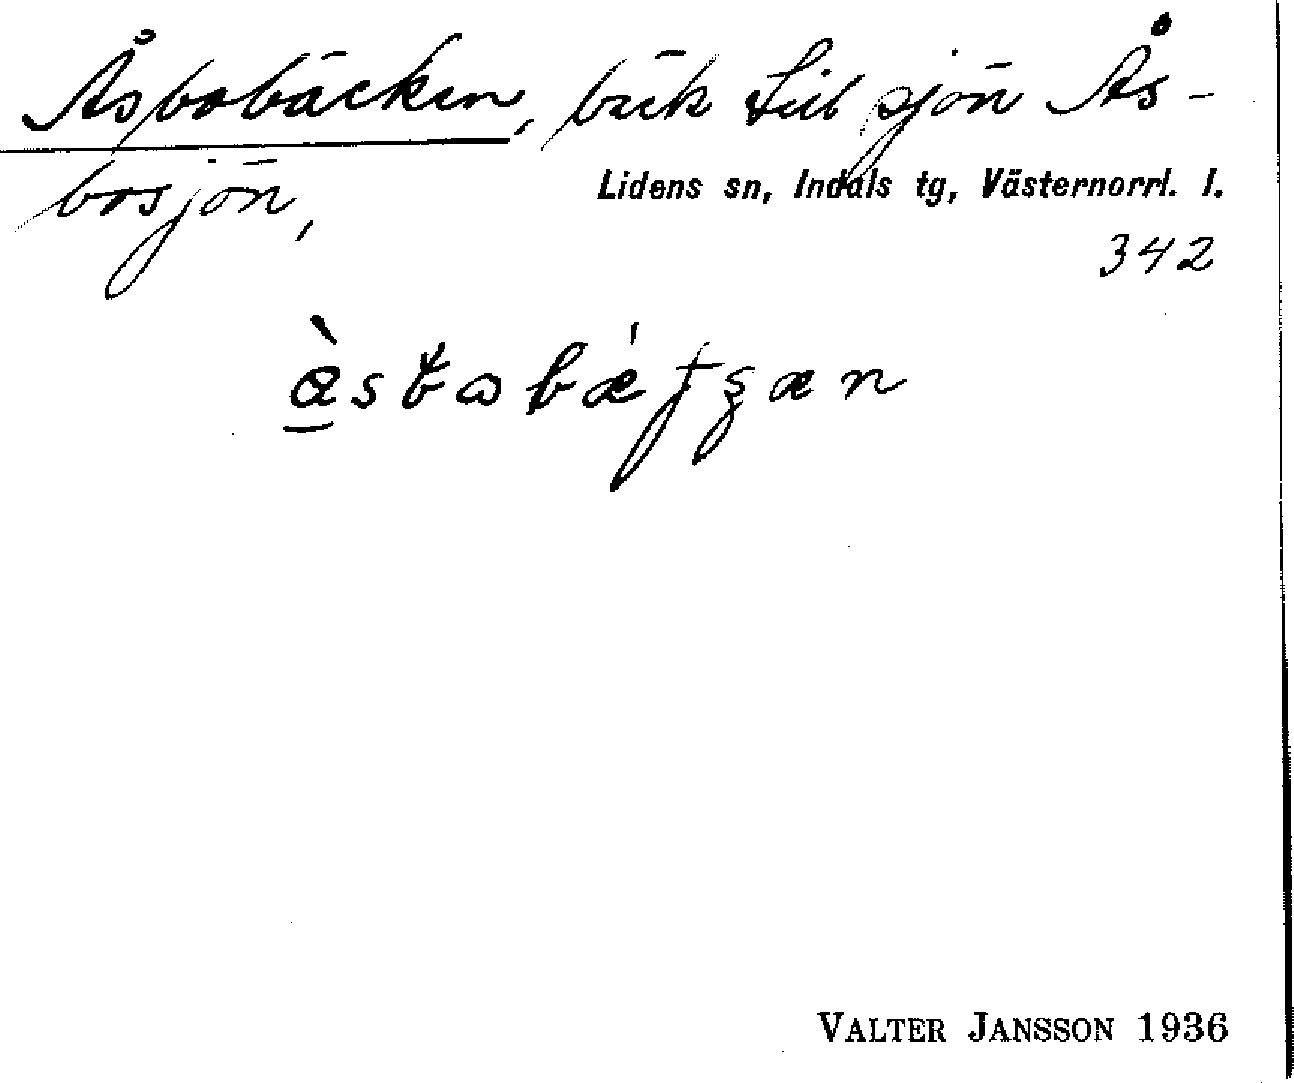 Åsbobäcken, bäck till sjön Ås-
bosjön,
Lidens sn, Indals tg, Västernorrl. l.
342
VALTER JANSSON 1936